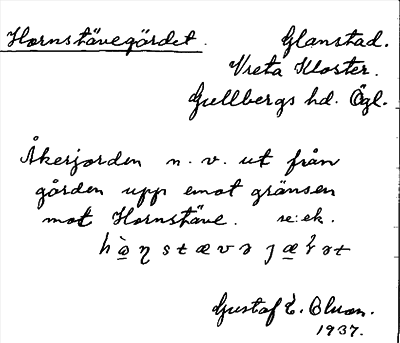 Hornstävegärdet. Glanstad.
Vreta Kloster.
Gullbergs hd. Ögl.
Åkerjorden n. v. ut från
gården upp emot gränsen
mot Hornstäve. se: ek.
Gustaf E. Olson.
1937.